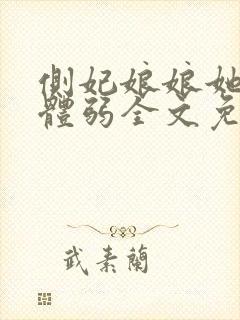 側妃娘娘她
體弱全文免
武素蘭